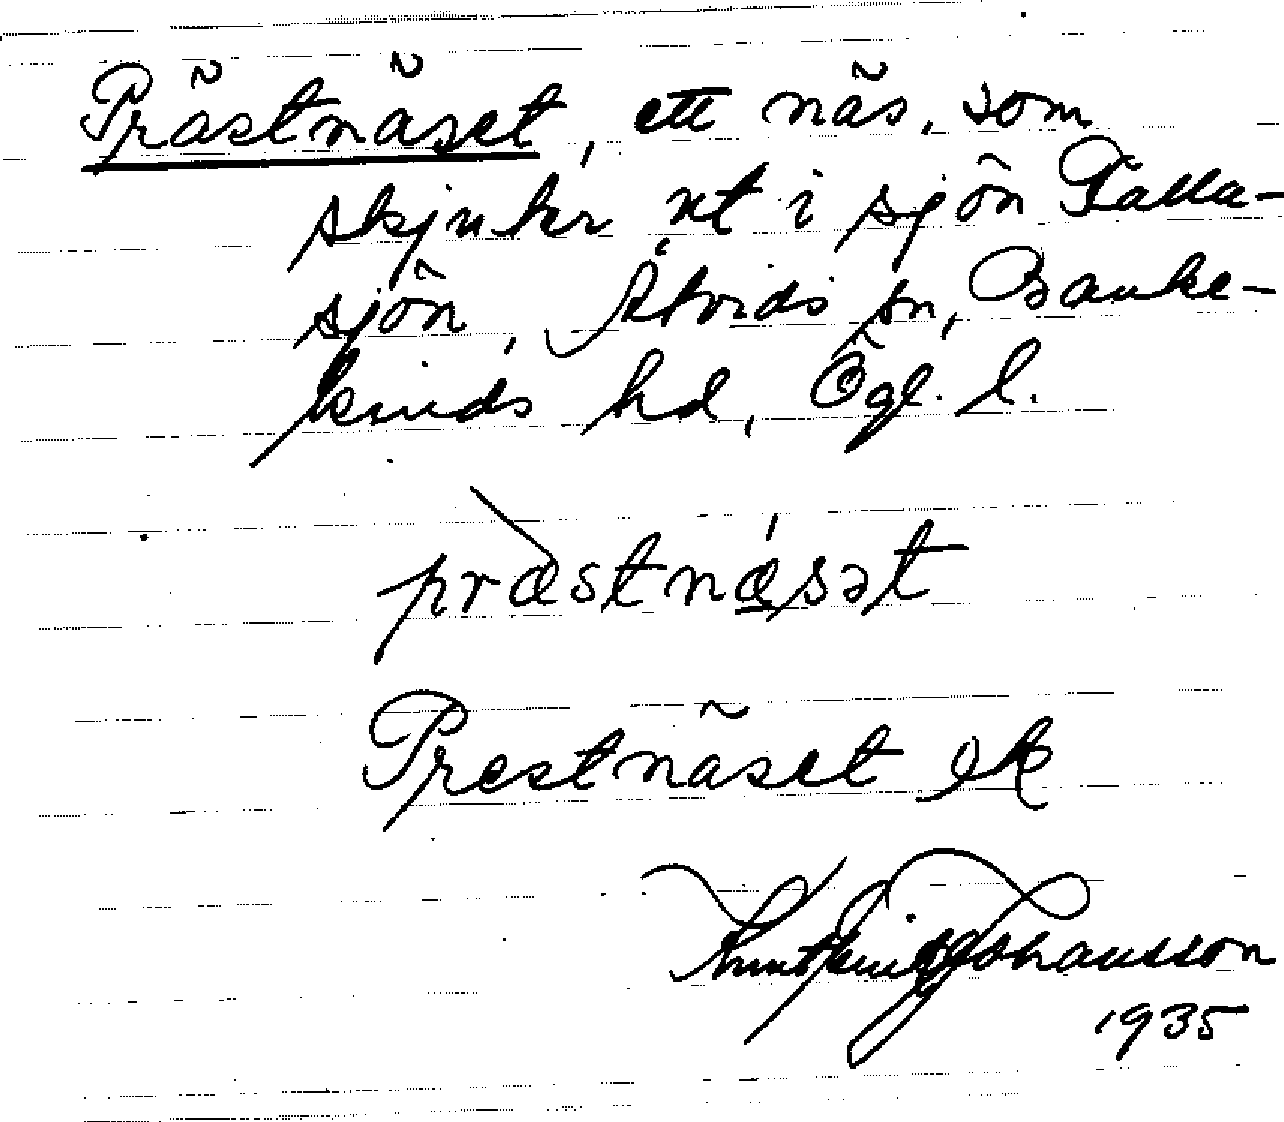 Prästnäset, ett näs, som
skjuter ut i sjön Tälla-
sjön, Åtvids sn, Banke-
kinds hd, Ögl. l.
præstnæsət
Prestnäset ek
Johansson
1935